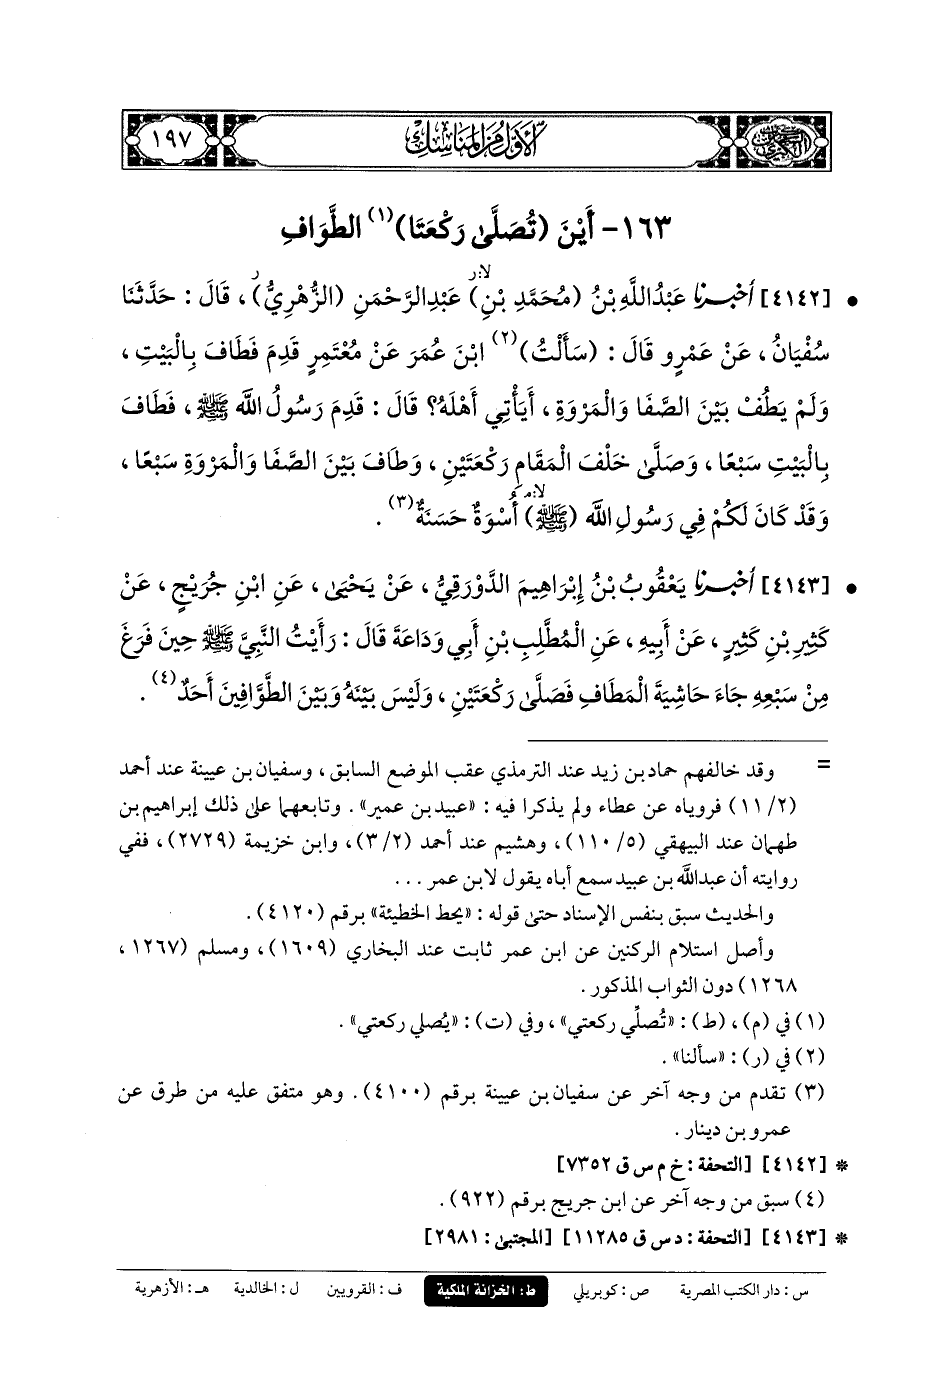 السنن الكبرى
الأول من المناسك
١٩٧
١٦٣- أَيْنَ (تُصَلَّىٰ رَكْعَتَا)(١) الطَّوَافِ
• [٤١٤٢] أخبرنا عَبْدُ اللَّهِ بْنُ (مُحَمَّدِ بْنِ) عَبْدِ الرَّحْمَنِ (الزُّهْرِيُّ)، قَالَ: حَدَّثَنَا
سُفْيَانُ، عَنْ عَمْرٍو قَالَ: (سَأَلْتُ)(٢) ابْنَ عُمَرَ عَنْ مُعْتَمِرٍ قَدِمَ فَطَافَ بِالْبَيْتِ،
وَلَمْ يَطُفْ بَيْنَ الصَّفَا وَالْمَرْوَةِ، أَيَأْتِي أَهْلَهُ؟ قَالَ: قَدِمَ رَسُولُ اللَّه ﷺ، فَطَافَ
بِالْبَيْتِ سَبْعًا، وَصَلَّىٰ خَلْفَ الْمَقَامِ رَكْعَتَيْنِ، وَطَافَ بَيْنَ الصَّفَا وَالْمَرْوَةِ سَبْعًا،
وَقَدْ كَانَ لَكُمْ فِي رَسُولِ اللَّه (ﷺ) أُسْوَةٌ حَسَنَةٌ(٣).
• [٤١٤٣] أخبرنا يَعْقُوبُ بْنُ إِبْرَاهِيمَ الدَّوْرَقِيُّ، عَنْ يَحْيَىٰ، عَنِ ابْنِ جُرَيْجٍ، عَنْ
كَثِيرِ بْنِ كَثِيرٍ، عَنْ أَبِيهِ، عَنِ الْمُطَّلِبِ بْنِ أَبِي وَدَاعَةَ قَالَ: رَأَيْتُ النَّبِيَّ ﷺ حِينَ فَرَغَ
مِنْ سَبْعِهِ جَاءَ حَاشِيَةَ الْمَطَافِ فَصَلَّىٰ رَكْعَتَيْنِ، وَلَيْسَ بَيْنَهُ وَبَيْنَ الطَّوَّافِينَ أَحَدٌ(٤).
= وقد خالفهم حماد بن زيد عند الترمذي عقب الموضع السابق، وسفيان بن عيينة عند أحمد
(٢/ ١١) فروياه عن عطاء ولم يذكرا فيه: «عبيد بن عمير». وتابعهما على ذلك إبراهيم بن
طهمان عند البيهقي (٥/ ١١٠)، وهشيم عند أحمد (٢/ ٣)، وابن خزيمة (٢٧٢٩)، ففي
روايته أن عبدالله بن عبيد سمع أباه يقول لابن عمر ...
والحديث سبق بنفس الإسناد حتى قوله: «يحط الخطيئة» برقم (٤١٢٠).
وأصل استلام الركنين عن ابن عمر ثابت عند البخاري (١٦٠٩)، ومسلم (١٢٦٧،
١٢٦٨) دون الثواب المذكور.
(١) في (م)، (ط): «تُصلِّي ركعتي»، وفي (ت): «يُصلي ركعتي».
(٢) في (ر): «سألنا».
(٣) تقدم من وجه آخر عن سفيان بن عيينة برقم (٤١٠٠). وهو متفق عليه من طرق عن
عمرو بن دينار.
* [٤١٤٢] [التحفة: خ م س ق ٧٣٥٢]
(٤) سبق من وجه آخر عن ابن جريج برقم (٩٢٢).
* [٤١٤٣] [التحفة: د س ق ١١٢٨٥] [المجتبى: ٢٩٨١]
س: دار الكتب المصرية ص: كوبريلي ط: الخزانة الملكية ف: القرويين ل: الخالدية هـ: الأزهرية